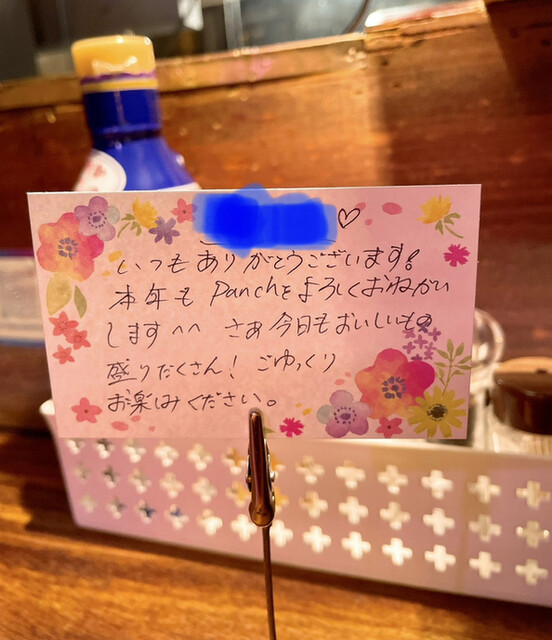 ♡
いつもありがとうございます!
本年も Panchをよろしくおねがい
します^^ さあ今日もおいしいもの
盛りだくさん! ごゆっくり
お楽しみください。